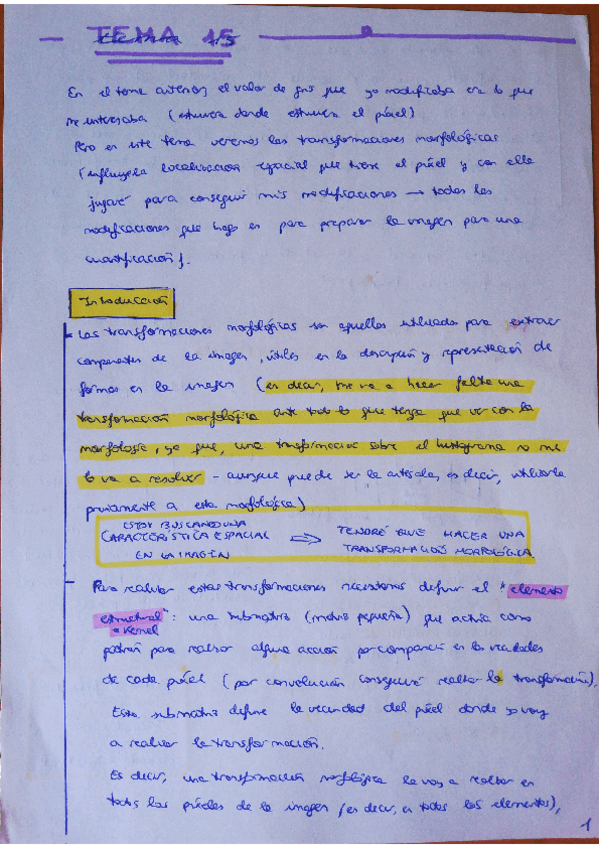 TEMA 15
En el tema anterior, el valor de gris que yo modificaba era lo que
me interesaba (estuviera donde estuviera el píxel)
Pero en este tema veremos las transformaciones morfológicas
(influye la localización espacial que tiene el píxel y con ella
jugaré para conseguir mis modificaciones → todas las
modificaciones que hago es para preparar la imagen para una
cuantificación).
Introducción
Las transformaciones morfológicas son aquellas utilizadas para extraer
componentes de la imagen, útiles en la descripción y representación de
formas en la imagen (es decir, me va a hacer falta una
transformación morfológica ante todo lo que tenga que ver con la
morfología, ya que, una transformación sobre el histograma no me
lo va a resolver - aunque puede ser la antesala, es decir, utilizarla
previamente a esta morfológica)
ESTOY BUSCANDO UNA
CARACTERÍSTICA ESPACIAL
EN LA IMAGEN
⇒ TENDRÉ QUE HACER UNA
TRANSFORMACIÓN MORFOLÓGICA
Para realizar estas transformaciones necesitamos definir el "elemento
estructural": una submatriz (matriz pequeña) que actúa como
o Kernel
patrón para realizar alguna acción por comparación en las vecindades
de cada píxel (por convolución conseguiré realizar la transformación).
Esta submatriz define la vecindad del píxel donde yo voy
a realizar la transformación.
Es decir, una transformación morfológica la voy a realizar en
todos los píxeles de la imagen (es decir, en todos los elementos),
1